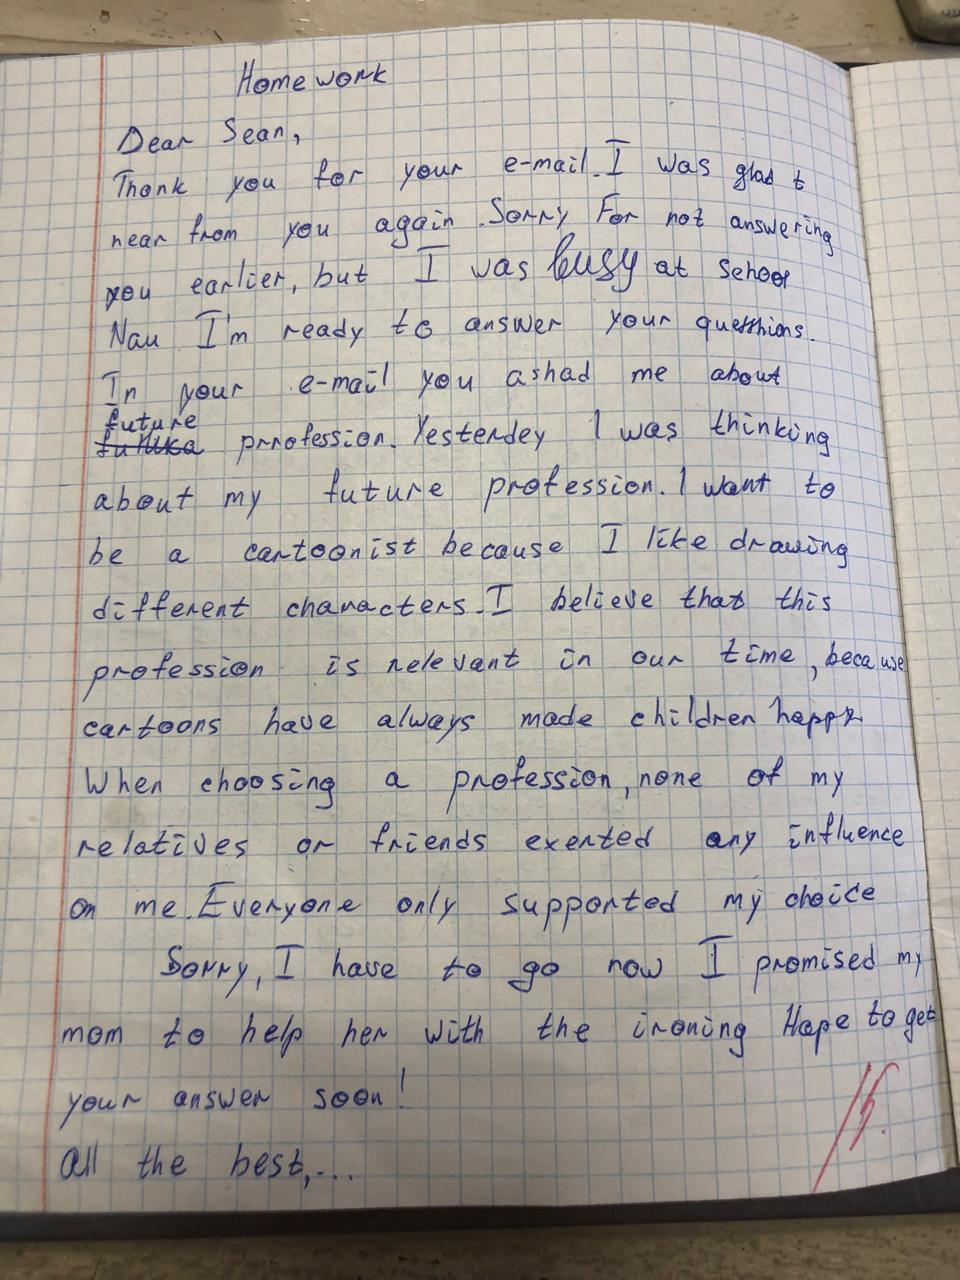 Homework
Dear Sean,
Thank you for your e-mail. I was glad t
near from you again. Sorry For not answering
you earlier, but I was busy at school
Nau I'm ready to answer your questhions.
In your e-mail you ashad me about
future
prrofession. Yesterdey I was thinking
about my future profession. I want to
be a cartoonist because I like drawing
different characters. I believe that this
profession is relevant in our time, because
cartoons have always made children happy
When choosing a profession, none of my
relatives or friends exerted any influence
on me. Everyone only supported my choice
Sorry, I have to go now I promised my
mom to help her with the ironing Hape to get
your answer soon!
All the best,...